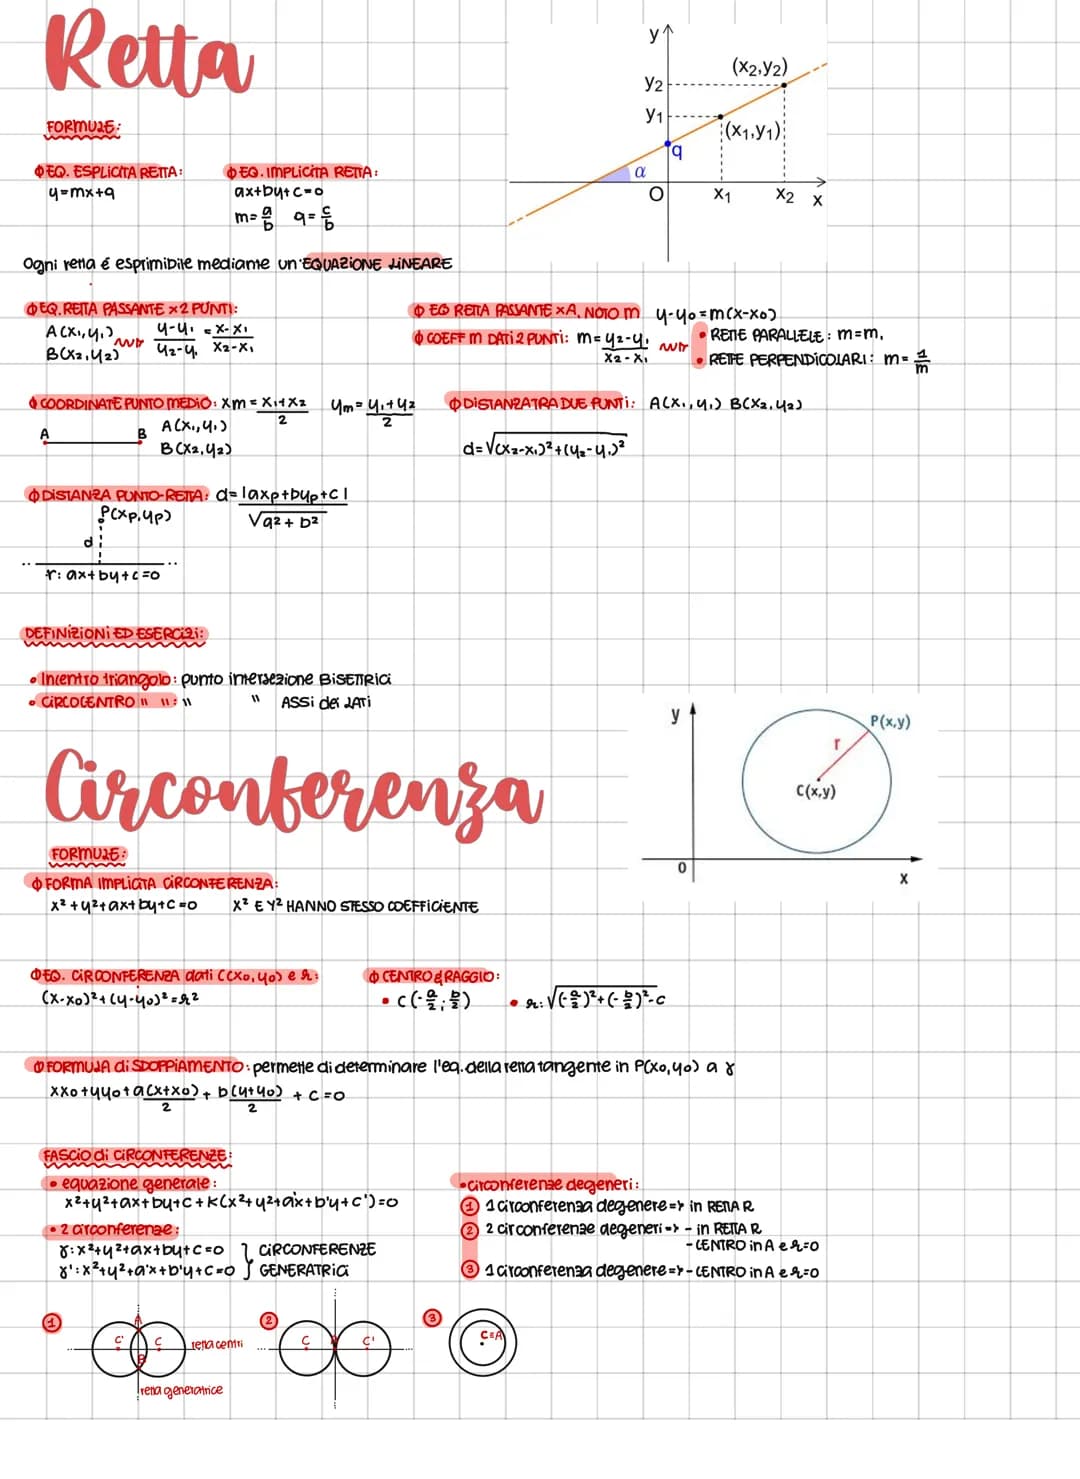 Retta
y
(x2,y2)
y2
y1
(x1,y1)
q
α
O
x1
x2
x
FORMULE:
EQ. ESPLICITA RETTA:
y=mx+q
EQ. IMPLICITA RETTA:
ax+by+c=0
m=a/b q=c/b
Ogni retta é esprimibile mediante un'EQUAZIONE LINEARE
EQ. RETTA PASSANTE x2 PUNTI:
A(x₁,y₁)
B(x₂,y₂)
y-y₁/y₂-y₁ = x-x₁/x₂-x₁
EQ RETTA PASSANTE xA, NOTO m y-y₀=m(x-x₀)
COEFF m DATI 2 PUNTI: m=y₂-y₁/x₂-x₁
• RETTE PARALLELE: m=m₁
• RETTE PERPENDICOLARI: m=1/m
COORDINATE PUNTO MEDIO: xm=x₁+x₂/2 ym=y₁+y₂/2
A B
A(x₁,y₁)
B(x₂,y₂)
DISTANZA TRA DUE PUNTI: A(x₁,y₁) B(x₂,y₂)
d=√(x₂-x₁)²+(y₂-y₁)²
DISTANZA PUNTO-RETTA: d=|axp+byp+c|/√a²+b²
P(xp,yp)
d
r: ax+by+c=0
DEFINIZIONI ED ESERCIZI:
• Incentro triangolo: punto intersezione BISETTRICI
• CIRCOCENTRO " ": " " ASSI dei LATI
Circonferenza
y
P(x,y)
r
C(x,y)
0
x
FORMULE:
FORMA IMPLICITA CIRCONFERENZA:
x²+y²+ax+by+c=0 X² E Y² HANNO STESSO COEFFICIENTE
EQ. CIRCONFERENZA dati C(x₀,y₀) e r:
(x-x₀)²+(y-y₀)²=r²
CENTRO & RAGGIO:
• C(-a/2; b/2) • r: √(-a/2)²+(-b/2)²-c
FORMULA di SDOPPIAMENTO: permette di determinare l'eq. della retta tangente in P(x₀,y₀) a γ
xx₀+yy₀+a(x+x₀)/2 + b(y+y₀)/2 + c=0
FASCIO di CIRCONFERENZE:
• equazione generale:
x²+y²+ax+by+c+K(x²+y²+a'x+b'y+c')=0
• 2 circonferenze:
γ: x²+y²+ax+by+c=0
γ': x²+y²+a'x+b'y+c=0
} CIRCONFERENZE
GENERATRICI
• circonferenze degeneri:
① 1 circonferenza degenere => in RETTA R
② 2 circonferenze degeneri => - in RETTA R
- CENTRO in A e r=0
③ 1 circonferenza degenere => - CENTRO in A e r=0
①
A
C' C
B
retta centri
retta generatrice
②
C C'
③
C≡A